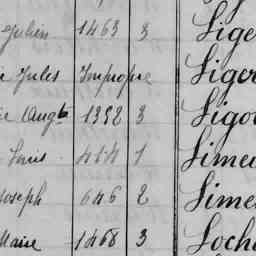 Julien 1463 3 Lige
Jules Impropre Liger
Augte 1392 3 Ligo
Louis 414 1 Lime
Joseph 646 2 Lime
Marie 1468 3 Loch